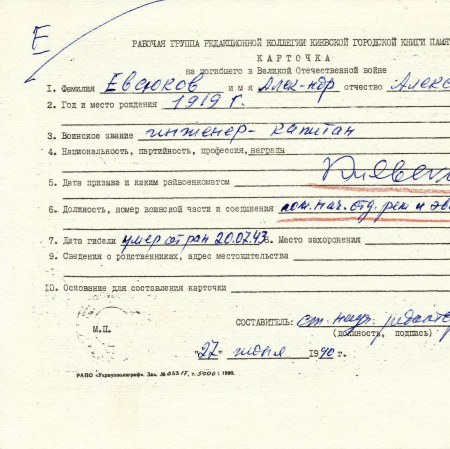 Е
РАБОЧАЯ ГРУППА РЕДАКЦИОННОЙ КОЛЛЕГИИ КИЕВСКОЙ ГОРОДСКОЙ КНИГИ ПАМЯ
КАРТОЧКА
на погибшего в Великой Отечественной войне
1. Фамилия Евсюков имя Алек-ндр отчество Алекс
2. Год и место рождения 1919 г.
3. Воинское звание инженер-капитан
4. Национальность, партийность, профессия, награды
5. Дата призыва и каким райвоенкоматом
6. Должность, номер воинской части и соединения пом. нач. отд. рем и эв
7. Дата гибели умер от ран 20.07.43 8. Место захоронения
9. Сведения о родственниках, адрес местожительства
10. Основание для составления карточки
М.П.
СОСТАВИТЕЛЬ: ст. науч. редакто
(должность, подпись)
"27" 1990 г.
РАПО «Укрвузполиграф». Зак. № 0331Т, т. 5000 : 1990.